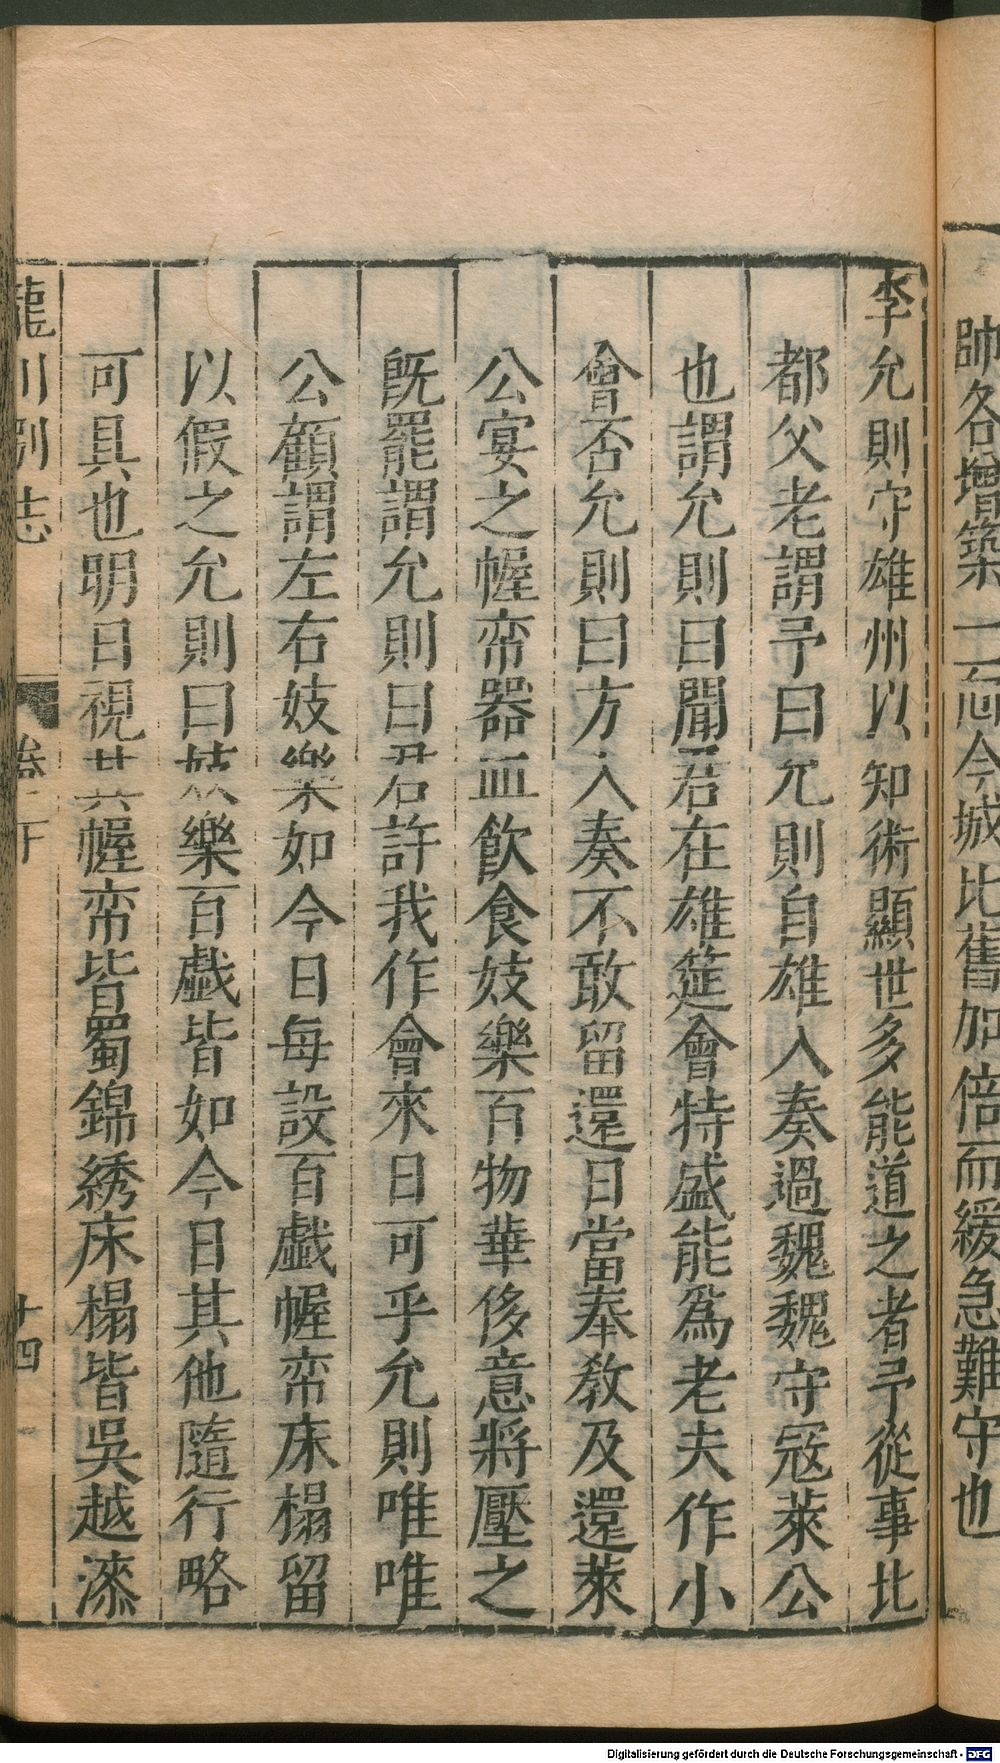 帥各增築一二面今城比舊加倍而緩急難守也
李允則守雄州以知術顯世多能道之者予從事北
都父老謂予曰允則自雄入奏過魏魏守寇萊公
也謂允則曰聞君在雄筵會特盛能爲老夫作小
會否允則曰方入奏不敢留還日當奉教及還萊
公宴之幄帟器皿飲食妓樂百物華侈意將壓之
旣罷謂允則曰君許我作會來日可乎允則唯唯
公顧謂左右妓樂如今日每設百戲幄帟床榻留
以假之允則曰妓樂百戲皆如今日其他隨行略
可具也明日視其幄帟皆蜀錦綉床榻皆吳越漆
龍川別志 卷下 十四
Digitalisierung gefördert durch die Deutsche Forschungsgemeinschaft - DFG